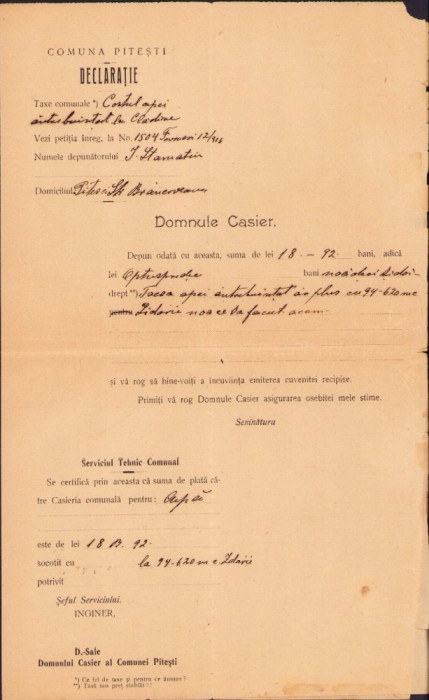 COMUNA PITEȘTI
DECLARAȚIE
Taxe comunale *) Costul apei
întrebuințat la Cladire
Vezi petiția înreg. la No. 1504
Numele depunătorului I. Stamatin
Domiciliul Pitești Str Brâncoveanu
Domnule Casier,
Depun odată cu aceasta, suma de lei 18 - 92 bani, adică
lei Optusprdce bani
drept **) Tacsa apei întrebuințat în plus cu 94-620 mc
pentru Zidărie ce s'a facut acum
și vă rog să bine-voiți a încuviința emiterea cuvenitei recipise.
Primiți vă rog Domnule Casier asigurarea osebitei mele stime.
Semnătura
Serviciul Tehnic Comunal
Se certifică prin aceasta că suma de plată că-
tre Casieria comunală pentru: Apă
este de lei 18 B. 92
socotit cu la 94-620 m c Zidărie
potrivit
Șeful Serviciului.
INGINER,
D.-Sale
Domnului Casier al Comunei Pitești
*) Ce fel de taxe și pentru ce anume?
**) Taxă sau preț stabilit?!